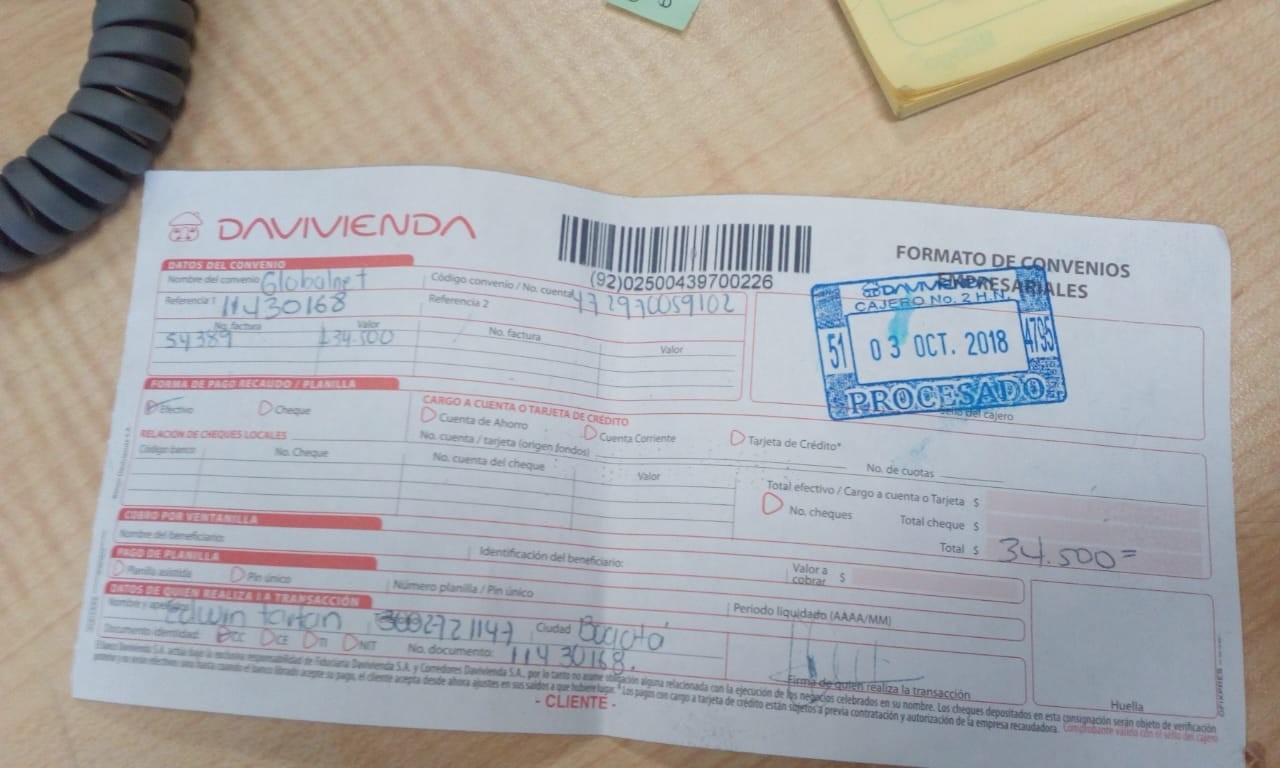 DAVIVIENDA
(92)02500439700226
FORMATO DE CONVENIOS
EMPRESARIALES
DATOS DEL CONVENIO
Nombre del convenio Globalnet
Código convenio / No. cuenta
Referencia 1 11430168
Referencia 2
No. factura Valor No. factura Valor
54389 $34.500
DAVIVIENDA
CAJERO No. 2 H.N.
51 03 OCT. 2018 4795
PROCESADO
sello del cajero
FORMA DE PAGO RECAUDO / PLANILLA
Efectivo Cheque
CARGO A CUENTA O TARJETA DE CRÉDITO
Cuenta de Ahorro Cuenta Corriente Tarjeta de Crédito*
No. cuenta / tarjeta (origen fondos) No. de cuotas
RELACIÓN DE CHEQUES LOCALES
Código banco No. Cheque No. cuenta del cheque Valor
Total efectivo / Cargo a cuenta o Tarjeta $
No. cheques Total cheque $
Total $ 34.500=
COBRO POR VENTANILLA
Nombre del beneficiario: Identificación del beneficiario: Valor a cobrar $
PAGO DE PLANILLA
Planilla asistida Pin único Número planilla / Pin único Periodo liquidado (AAAA/MM)
DATOS DE QUIEN REALIZA LA TRANSACCIÓN
Nombre y apellidos Edwin 3002721147 Ciudad Bogotá
Documento identidad: CC CE TI NIT No. documento: 11430168.
Firma de quien realiza la transacción
Huella
El Banco Davivienda S.A. actúa bajo la exclusiva responsabilidad de Fiduciaria Davivienda S.A. y Corredores Davivienda S.A., por lo tanto no asume obligación alguna relacionada con la ejecución de los negocios celebrados en su nombre. Los cheques depositados en esta consignación serán objeto de verificación
posterior y no serán efectivos sino hasta cuando el banco librado acepte su pago, el cliente acepta desde ahora ajustes en sus saldos a que hubiere lugar. * Los pagos con cargo a tarjeta de crédito están sujetos a previa contratación y autorización de la empresa recaudadora. Comprobante válido con el sello del cajero
- CLIENTE -